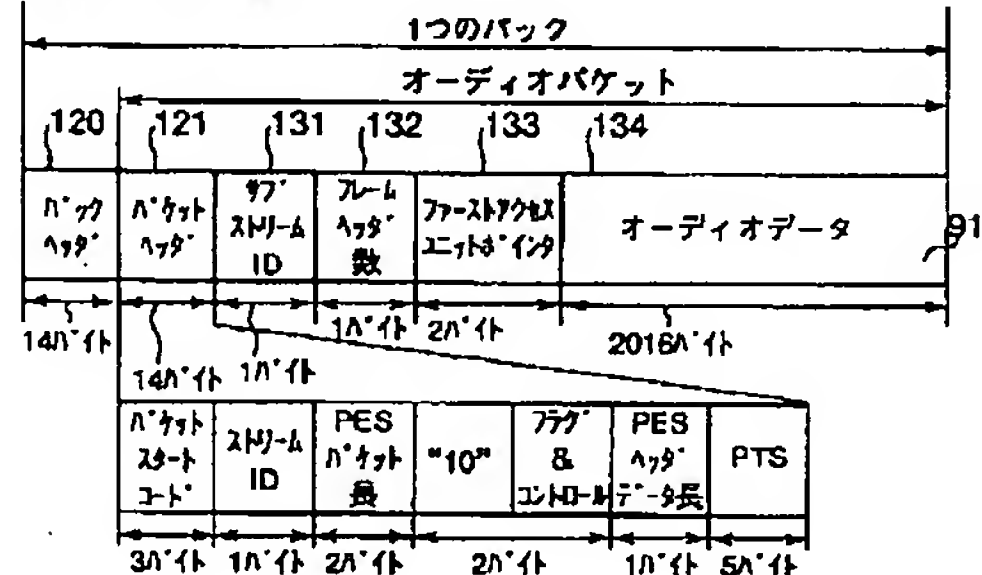 1つのパック
オーディオパケット
120 121 131 132 133 134
パック
ヘッダ
パケット
ヘッダ
サブ
ストリーム
ID
フレーム
ヘッダ
数
ファーストアクセス
ユニットポインタ
オーディオデータ
91
14バイト
14バイト
1バイト
1バイト
2バイト
2016バイト
パケット
スタート
コード
ストリーム
ID
PES
パケット
長
"10"
フラグ
&
コントロール
PES
ヘッダ
データ長
PTS
3バイト 1バイト 2バイト 2バイト 1バイト 5バイト